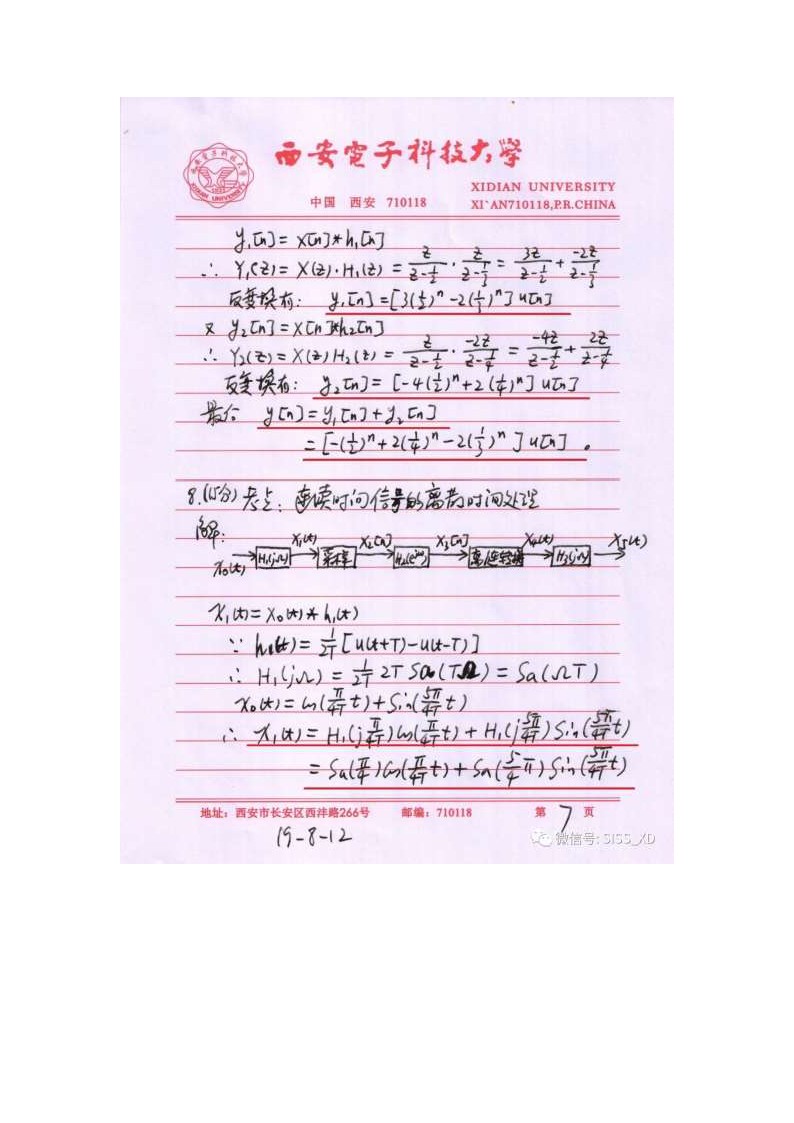 西安電子科技大學
XIDIAN UNIVERSITY
中国 西安 710118 XI`AN710118,P.R.CHINA
y₁[n] = x[n]*h₁[n]
∴ Y₁(z) = X(z)·H₁(z) = z/(z-1/2) · z/(z-1/3) = 3z/(z-1/2) + -2z/(z-1/3)
反变换有: y₁[n] = [3(1/2)ⁿ -2(1/3)ⁿ] u[n]
又 y₂[n] = x[n]*h₂[n]
∴ Y₂(z) = X(z) H₂(z) = z/(z-1/2) · -2z/(z-1/4) = -4z/(z-1/2) + 2z/(z-1/4)
反变换有: y₂[n] = [-4(1/2)ⁿ+2(1/4)ⁿ] u[n]
最后 y[n] = y₁[n] + y₂[n]
= [-(1/2)ⁿ + 2(1/4)ⁿ -2(1/3)ⁿ ] u[n] 。
8.(15分) 考点: 连续时间信号的离散时间处理
解:
x₀(t) H₁(jΩ) x₁(t) 采样 x₂[n] H₂(e^jω) x₃[n] 离/连转换 x₄(t) H₃(jΩ) x₅(t)
x₁(t) = x₀(t) * h₁(t)
∵ h₁(t) = 1/2T [u(t+T)-u(t-T)]
∴ H₁(jΩ) = 1/2T 2T Sa(TΩ) = Sa(ΩT)
x₀(t) = cos(π/4T t) + Sin(5π/4T t)
∴ x₁(t) = H₁(jπ/4T) cos(π/4T t) + H₁(j5π/4T) Sin(5π/4T t)
= Sa(π/4) cos(π/4T t) + Sa(5/4 π) Sin(5π/4T t)
地址: 西安市长安区西沣路266号 邮编: 710118 第 7 页
19-8-12
微信号: SISS_XD